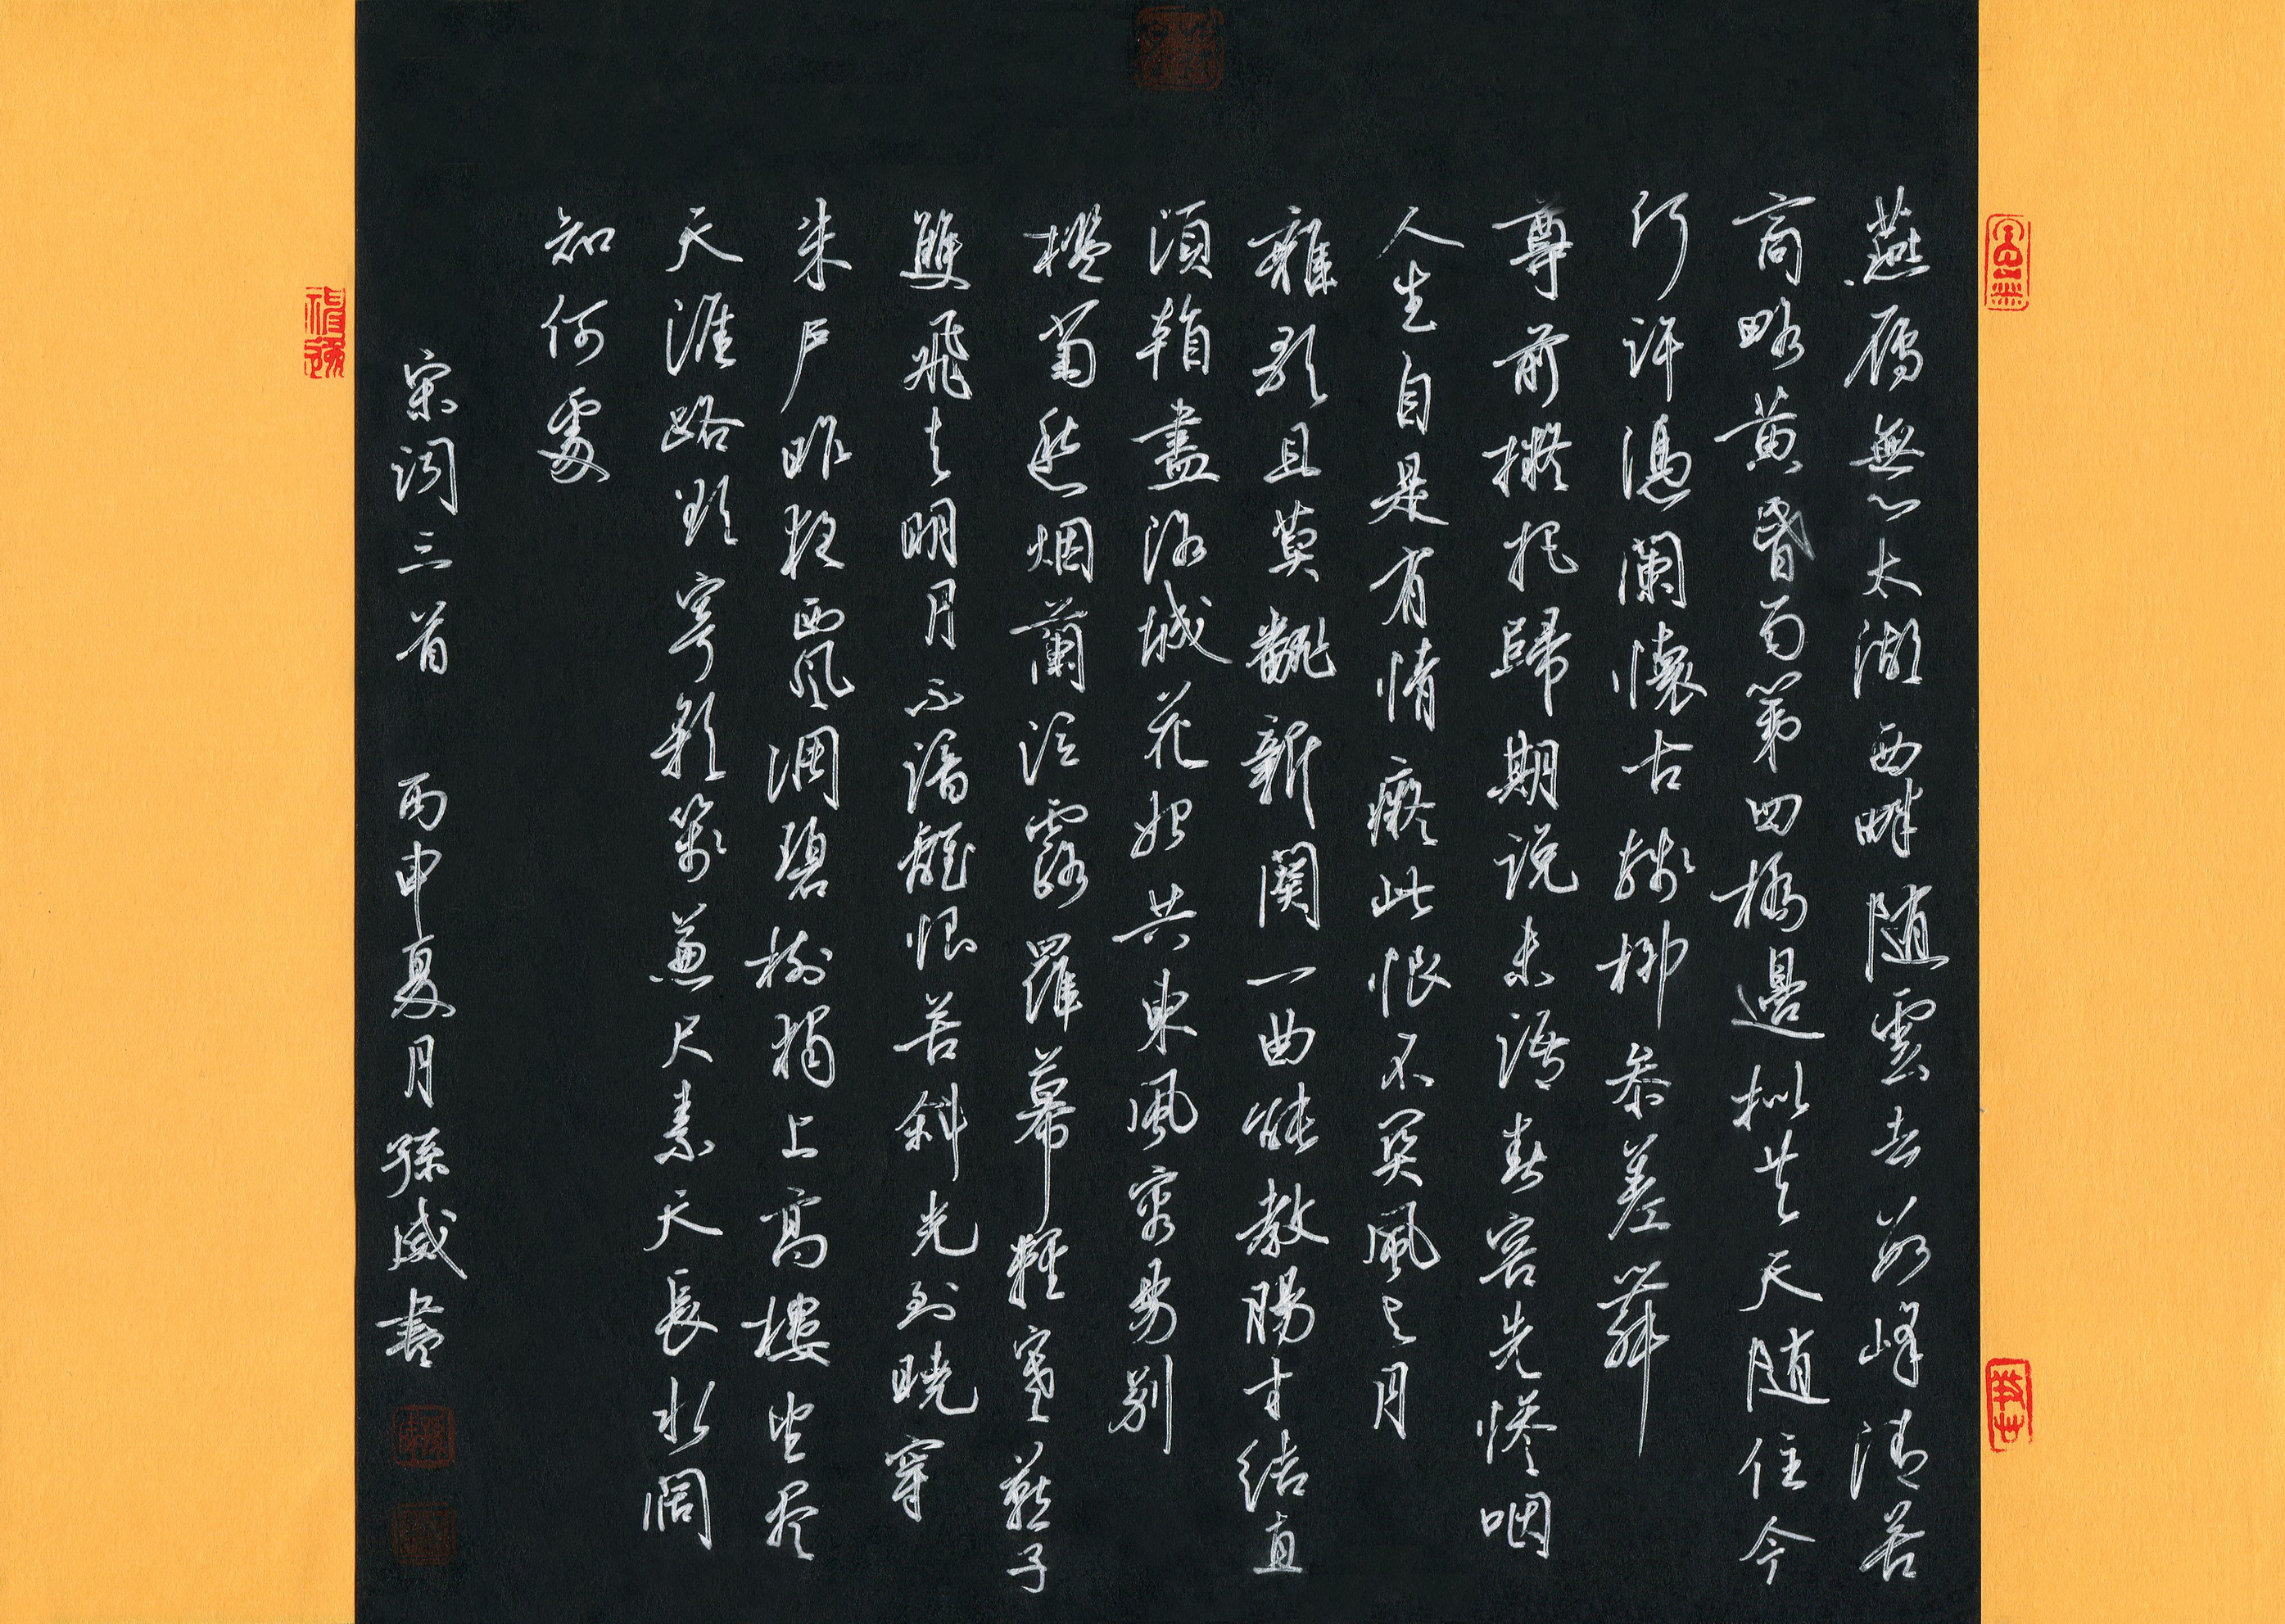 燕雁無心太湖西畔随雲去數峰清苦
商略黄昏雨第四橋邊拟共天随住今
何许憑闌懷古殘柳参差舞
尊前擬把歸期说未語春容先惨咽
人生自是有情癡此恨不関風与月
離歌且莫翻新闋一曲能教腸寸結直
須看盡洛城花始共東風容易别
檻菊愁烟蘭泣露羅幕輕寒燕子
雙飛去明月不諳離恨苦斜光到曉穿
朱户昨夜西風凋碧樹獨上高樓望尽
天涯路欲寄彩箋兼尺素天長水闊
知何處
宋词三首 丙申夏月孫威書